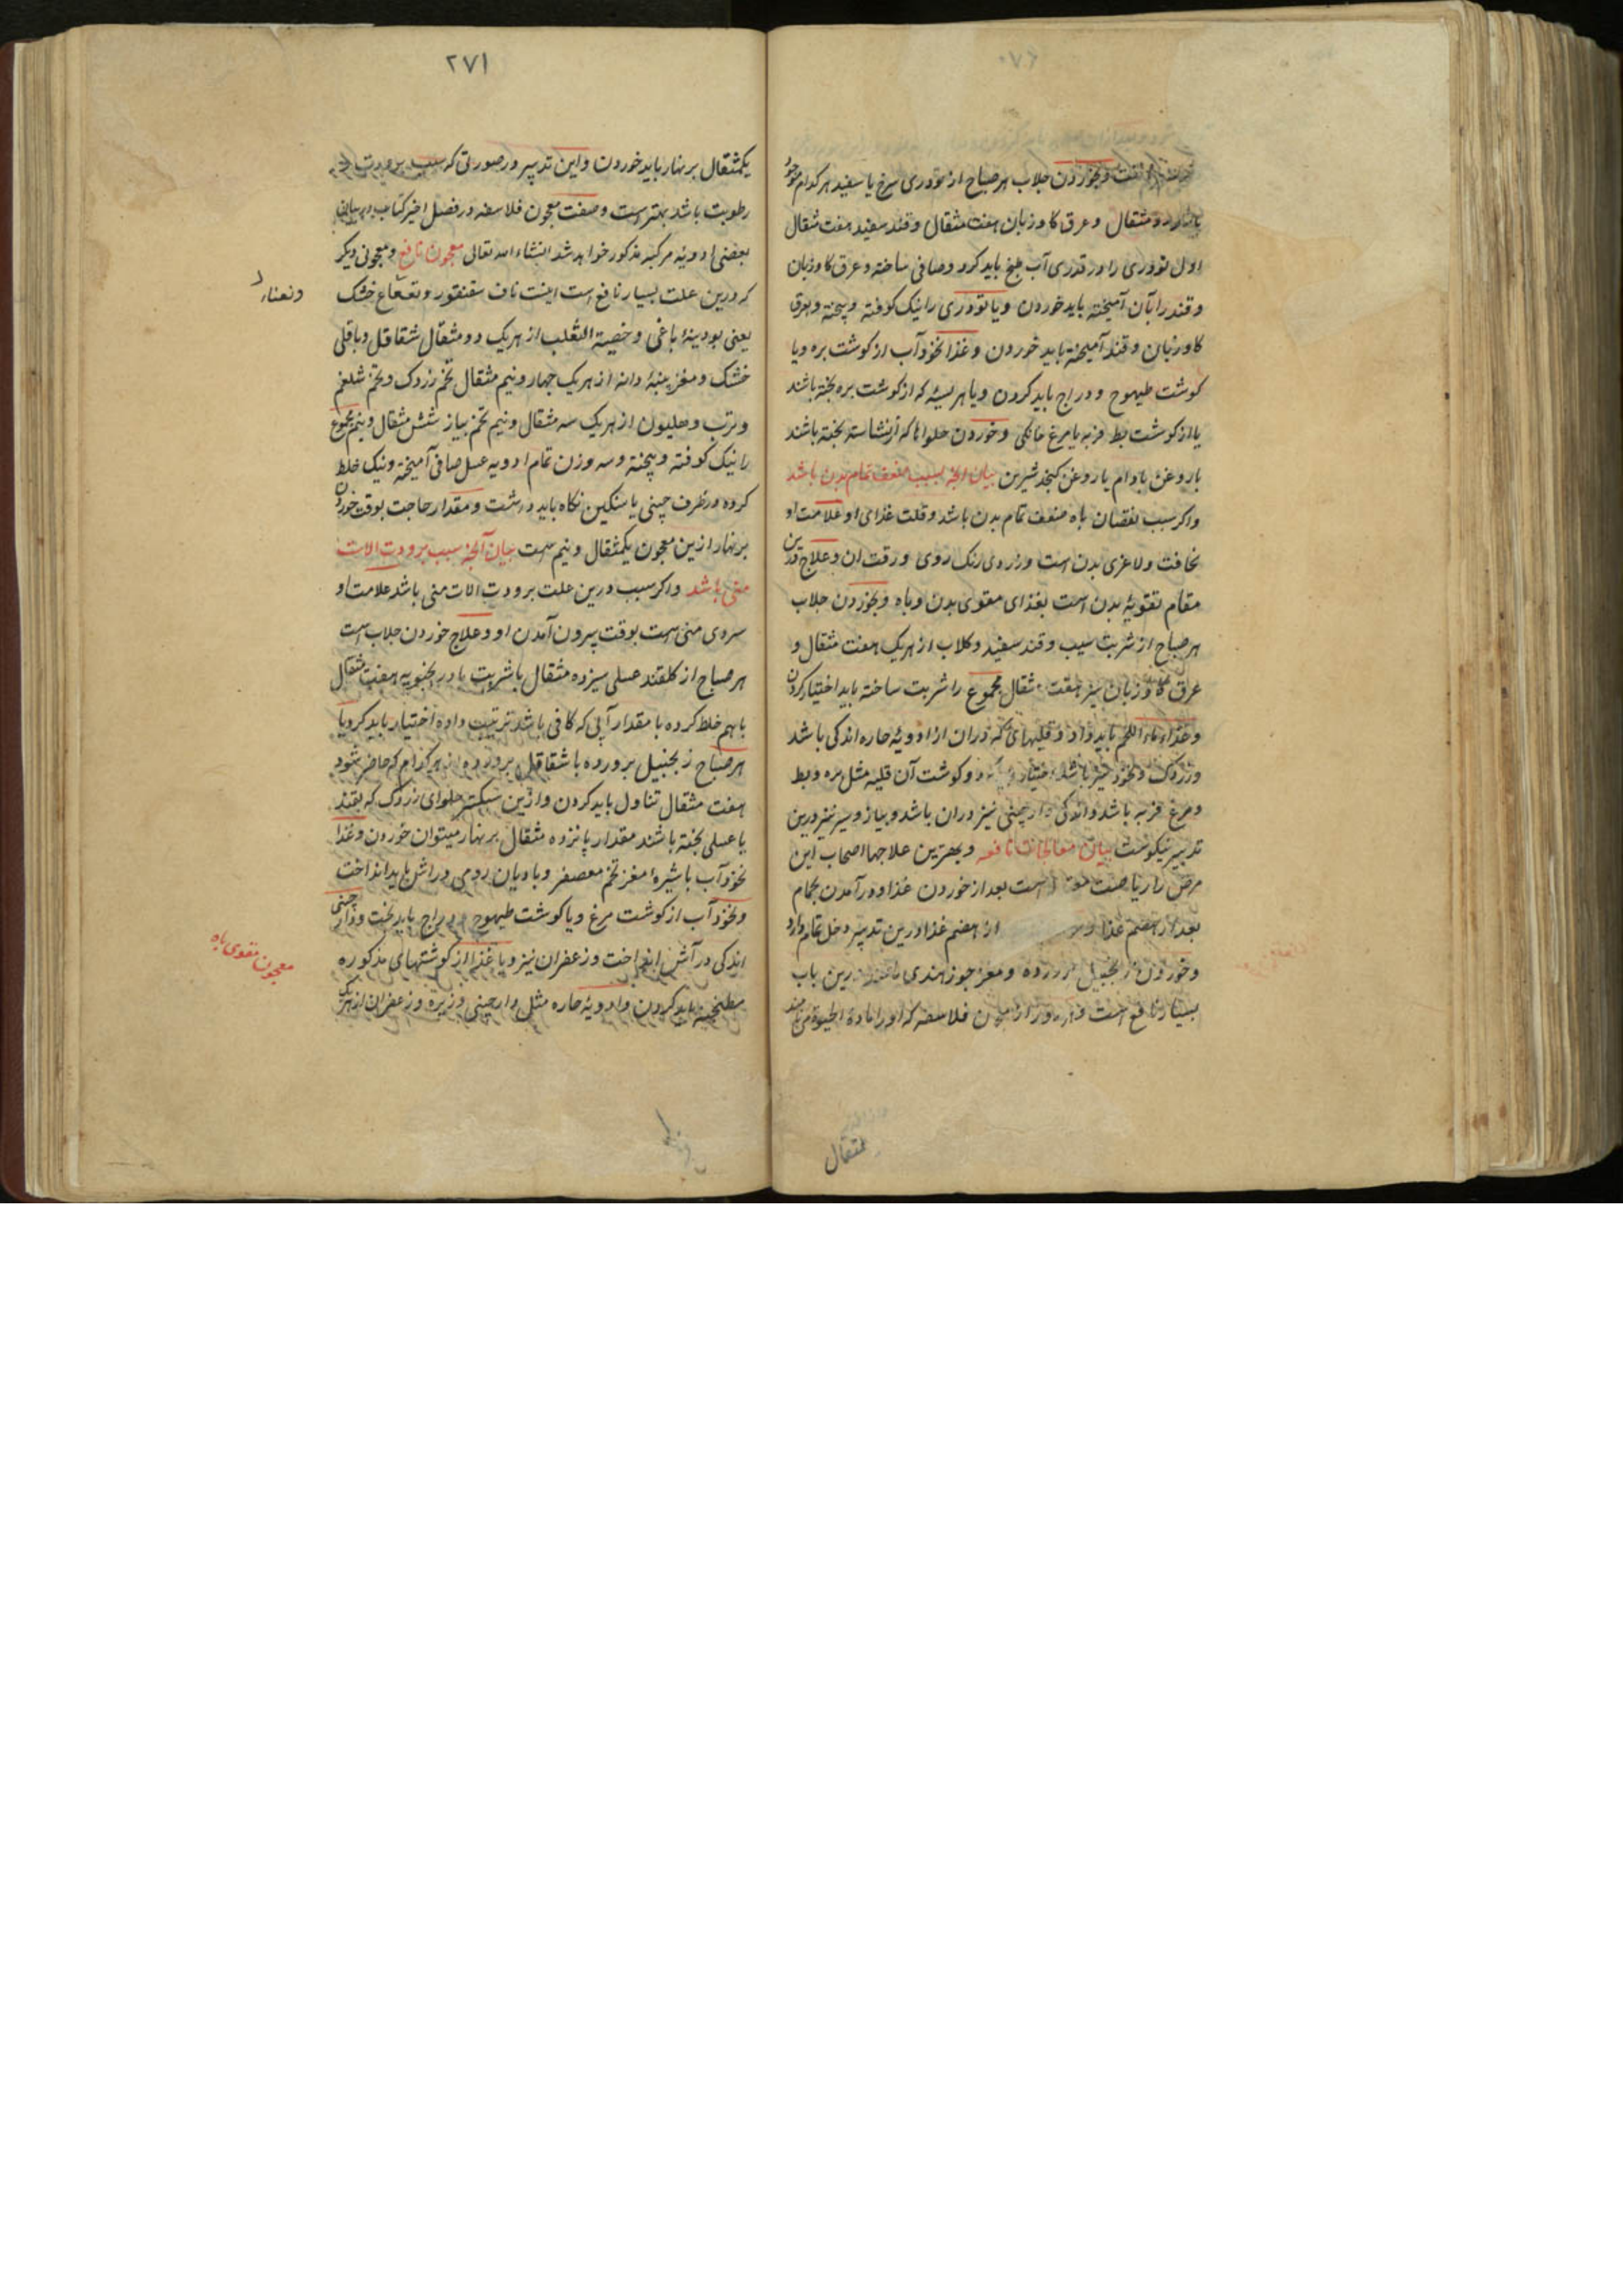 وبخوردن جلاب هر صباح از تودری سرخ یا سفید هر کدام موجود
باشد دو مثقال و عرق کاوزبان هفت مثقال و قند سفید هفت مثقال
اول تودری را در قدری آب طبخ باید کرد و صافی ساخته و عرق کاوزبان
و قند را بآن آمیخته باید خوردن و یا تودری را نیک کوفته و بیخته و بعرق
کاوزبان و قند آمیخته باید خوردن و غذا نخودآب از کوشت بره و یا
کوشت طیهوج و دراج باید کردن و یا هریسهٔ که از کوشت بره پخته باشند
یا از کوشت بط فربه یا مرغ خانکی و خوردن حلواها که از نشاسته پخته باشند
با روغن بادام یا روغن کنجد شیرین بیان آنچه بسبب ضعف تمام بدن باشد
واکر سبب نقصان باه ضعف تمام بدن باشد و قلت غذای او علامت او
نحافت و لاغری بدن است و زردی رنک روی و رقت آن و علاج درین
مقام تقویهٔ بدن است بغذای مقوی بدن و باه و بخوردن جلاب
هر صباح از شربت سیب و قند سفید و کلاب از هریک هفت مثقال و
عرق کاوزبان نیز هفت مثقال مجموع را شربت ساخته باید اختیار کردن
وغذاء ماء اللحم باید داد و قلیهای که دران از ادویهٔ حاره اندکی باشد
وزردک و نخود نیز باشد و کوشت آن قلیه مثل بره و بط
و مرغ فربه باشد و اندکی دارچینی نیز دران باشد و پیاز و سیر نیز درین
تدبیر نیکوست بیان معالجات نافعه و بهترین علاجها اصحاب این
مرض را ریاضت است بعد از خوردن غذا و درآمدن بحمام
بعد از هضم غذا از هضم غذا درین تدبیر دخل تمام دارد
وخوردن زنجبیل پرورده و مغز جوز هندی درین باب
بسیار نافع است از معجون فلاسفه که او را مادة الحیوة می‌نامند
مثقال
۲۷۱
یکمثقال بر نهار باید خوردن و این تدبیر در صورتی که سبب برودت و
رطوبت باشد بهترست و صفت معجون فلاسفه در فصل اخیر کتاب در بیان
بعضی ادویهٔ مرکبه مذکور خواهد شد انشاء الله تعالی معجون نافع و معجونی دیکر
که درین علت بسیار نافع است اینست ناف سقنقور و نعناع خشک
یعنی بودینهٔ باغی و خصیة الثعلب از هریک دو مثقال شقاقل و باقلی
خشک و مغز پنبهٔ دانه از هریک چهار و نیم مثقال تخم زردک و تخم شلغم
وترب و هلیون از هریک سه مثقال و نیم تخم پیاز شش مثقال و نیم مجموع
را نیک کوفته و بیخته و سه وزن تمام ادویه عسل صافی آمیخته و نیک خلط
کرده در ظرف چینی یا سنکین نکاه باید داشت و مقدار حاجت بوقت خوردن
بر نهار ازین معجون یکمثقال و نیم است بیان آنچه سبب برودت الات
منی باشد واکر سبب درین علت برودت الات منی باشد علامت او
سردی منی است بوقت بیرون آمدن او و علاج خوردن جلاب است
هر صباح از کلقند عسلی سیزده مثقال با شربت بادرنجبویه هفت مثقال
باهم خلط کرده با مقدار آبی که کافی باشد ترتیب داده اختیار باید کرد و یا
هر صباح زنجبیل پرورده یا شقاقل پرورده از هر کدام که حاضر شود
هفت مثقال تناول باید کردن و ازین سبکتر حلوای زردک که بقند
یا عسلی پخته باشند مقدار پانزده مثقال بر نهار میتوان خوردن و غذا
نخودآب با شیرهٔ مغز تخم معصفر و بادیان رومی دراش باید انداخت
و نخودآب از کوشت مرغ و یا کوشت طیهوج و دراج باید پخت و دارچینی
اندکی در آش انداخت و زعفران نیز و یا غذا از کوشتهای مذکوره
مطنجنه باید کردن و ادویهٔ حاره مثل دارچینی و زیره و زعفران از هریک
معجون مقوی باه